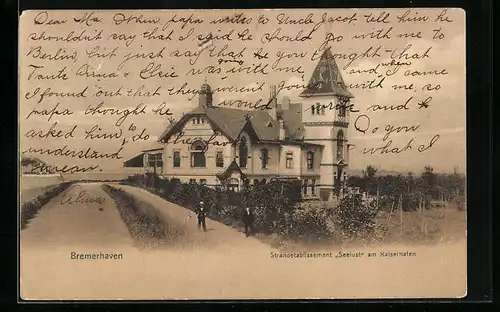 Dear Ma. When papa writes to Uncle Jacob tell him he
shouldn't say that I said he should go with me to
Berlin, but just say that he you thought that
Tante Anna & Elsie was going with me, and when I came
I found out that they weren't with me, so
papa thought he wrote and he
asked him to do the favor. Do you
understand what I
because
Alma
Bremerhaven
Strandetablissement „Seelust“ am Kaiserhafen